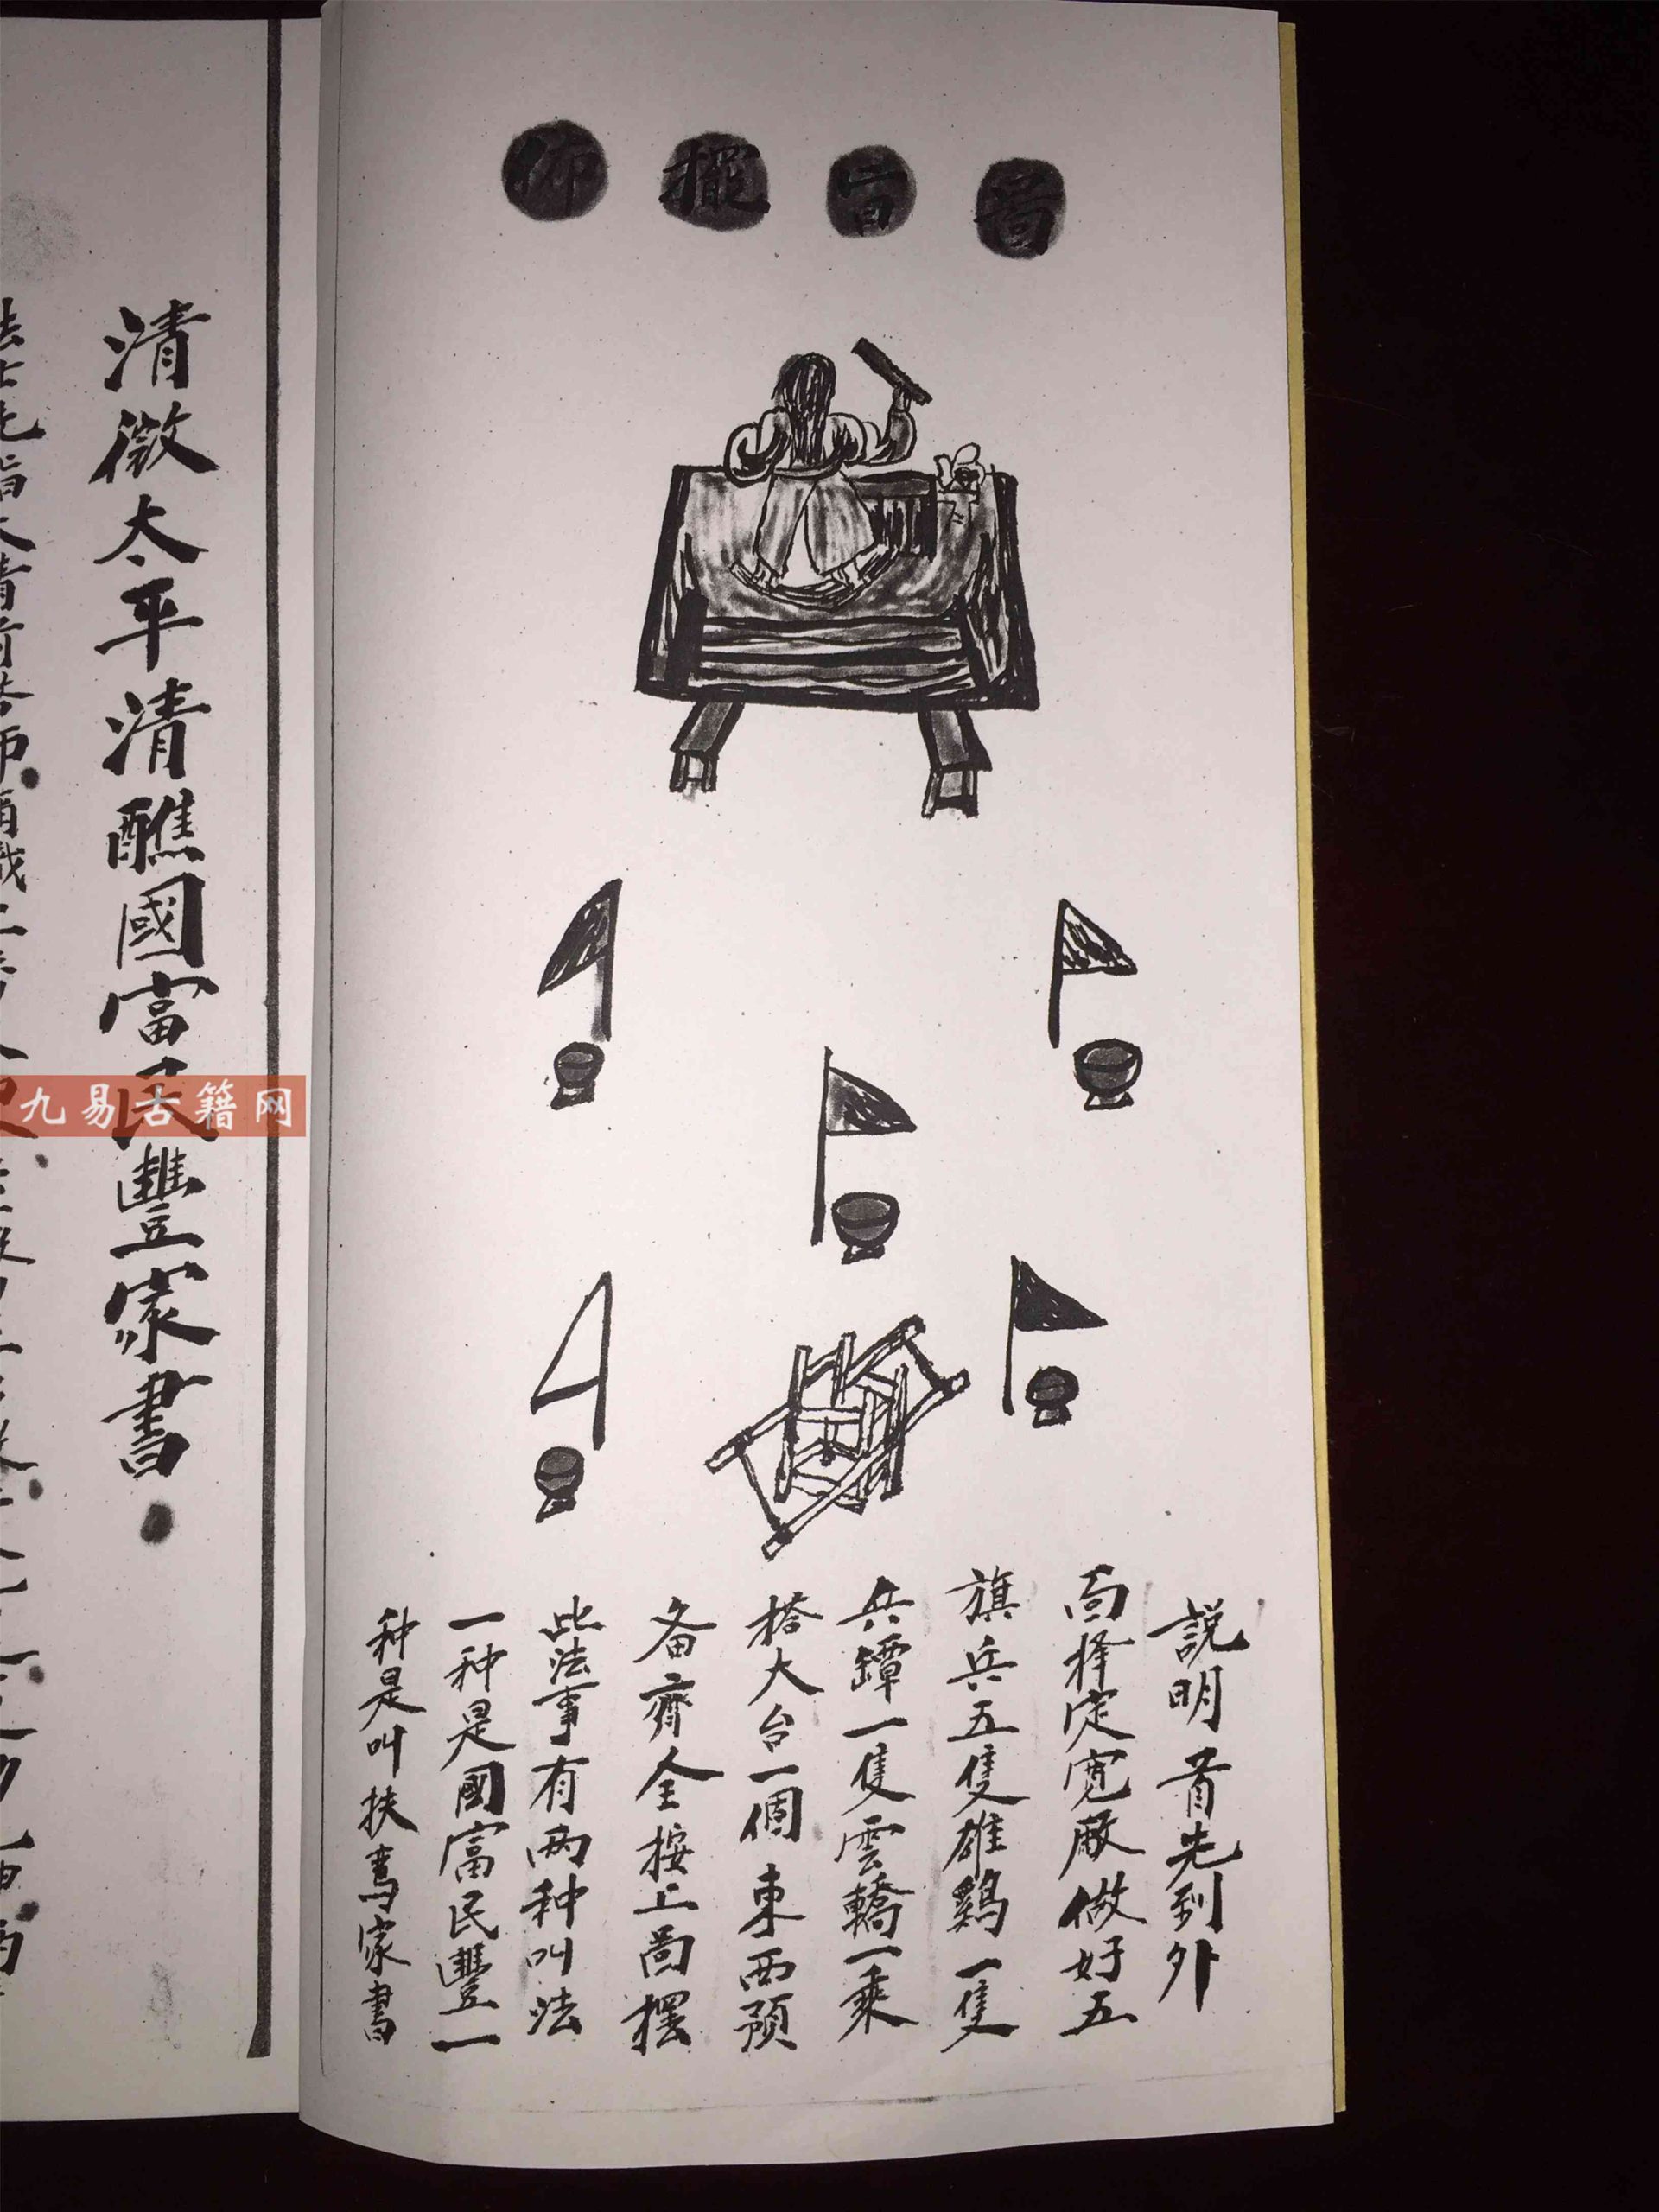 啚旨擺佈
説明 首先到外
面择定宽厰做好五
旗兵五隻雄鷄一隻
兵罈一隻雲轎一乘
搭大台一個東西预
备齊全按上啚摆
此法事有两种叫法
一种是國富民豐一
种是叫扶鸞家書
清微太平清醮國富民豐家書
九易古籍网